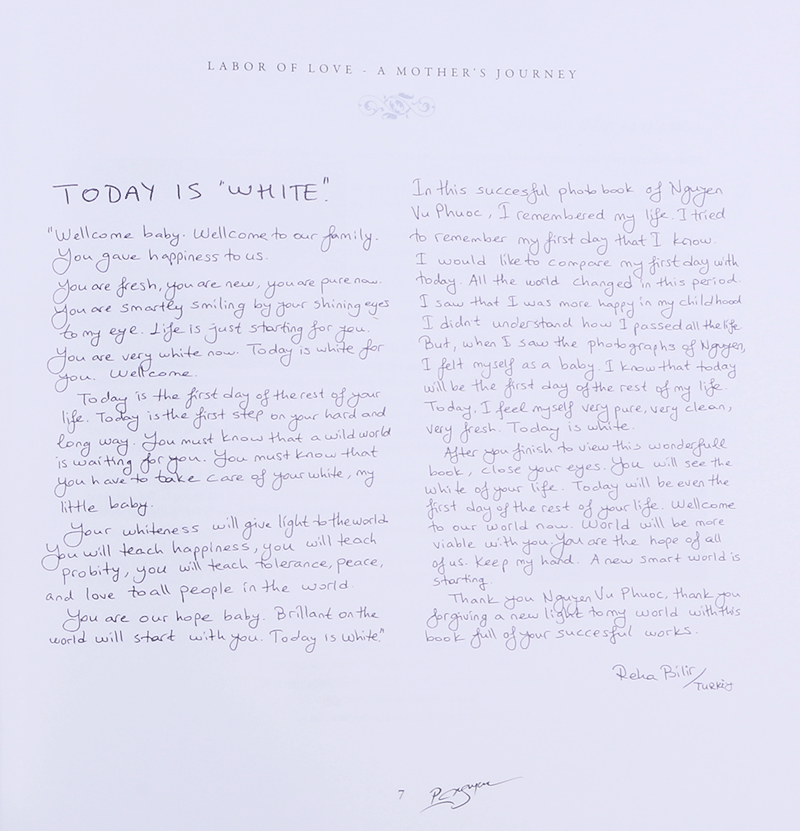 LABOR OF LOVE - A MOTHER'S JOURNEY
TODAY IS "WHITE".
"Wellcome baby. Wellcome to our family.
You gave happiness to us.
You are fresh, you are new, you are pure now.
You are smartly smiling by your shining eyes
to my eye. Life is just starting for you.
You are very white now. Today is white for
you. Wellcome.
Today is the first day of the rest of your
life. Today is the first step on your hard and
long way. You must know that a wild world
is waiting for you. You must know that
you have to take care of your white, my
little baby.
Your whiteness will give light to the world
You will teach happiness, you will teach
probity, you will teach tolerance, peace,
and love to all people in the world.
You are our hope baby. Brillant on the
world will start with you. Today is white."
In this succesful photobook of Nguyen
Vu Phuoc, I remembered my life. I tried
to remember my first day that I know.
I would like to compare my first day with
today. All the world changed in this period.
I saw that I was more happy in my childhood
I didn't understand how I passed all the life
But, when I saw the photographs of Nguyen,
I felt myself as a baby. I know that today
will be the first day of the rest of my life.
Today, I feel myself very pure, very clean,
very fresh. Today is white.
After you finish to view this wonderfull
book, close your eyes. You will see the
white of your life. Today will be even the
first day of the rest of your life. Wellcome
to our world now. World will be more
viable with you. You are the hope of all
of us. Keep my hand. A new smart world is
starting.
Thank you Nguyen Vu Phuoc, thank you
forgiving a new light to my world with this
book full of your succesful works.
Reha Bilir/
7